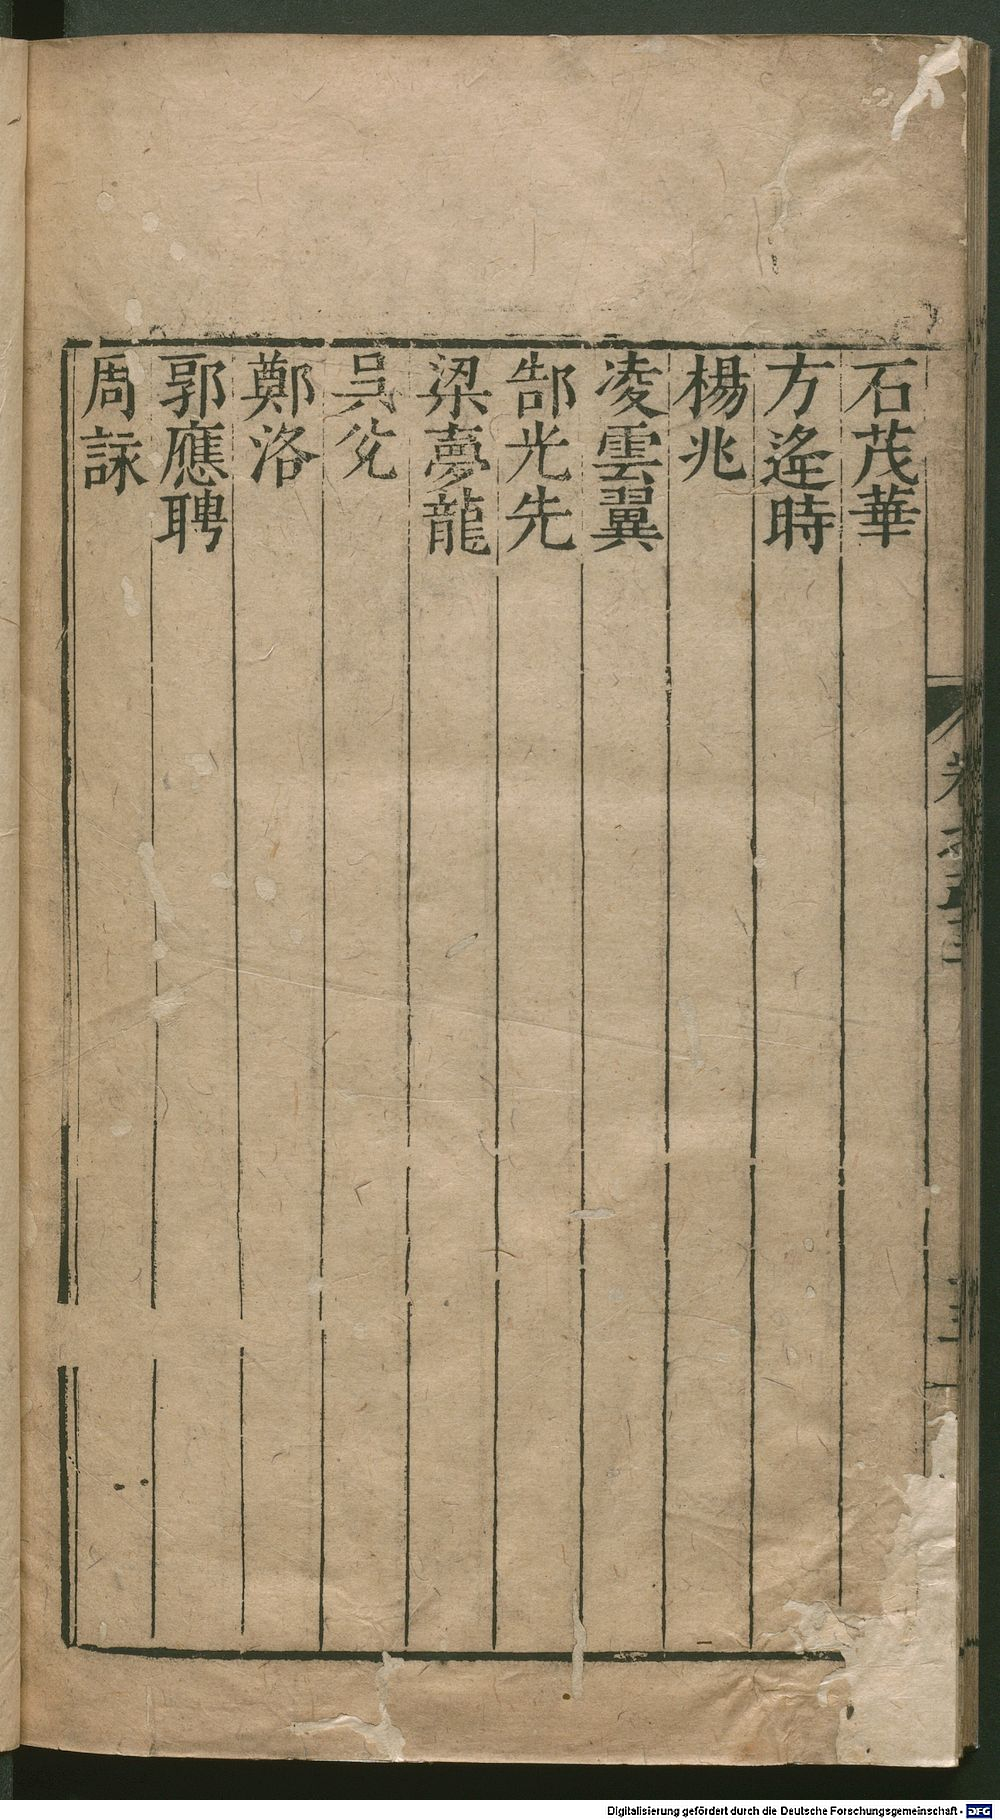 石茂華
方逢時
楊兆
凌雲翼
郜光先
梁夢龍
吳兌
鄭洛
郭應聘
周詠
Digitalisierung gefördert durch die Deutsche Forschungsgemeinschaft - DFG